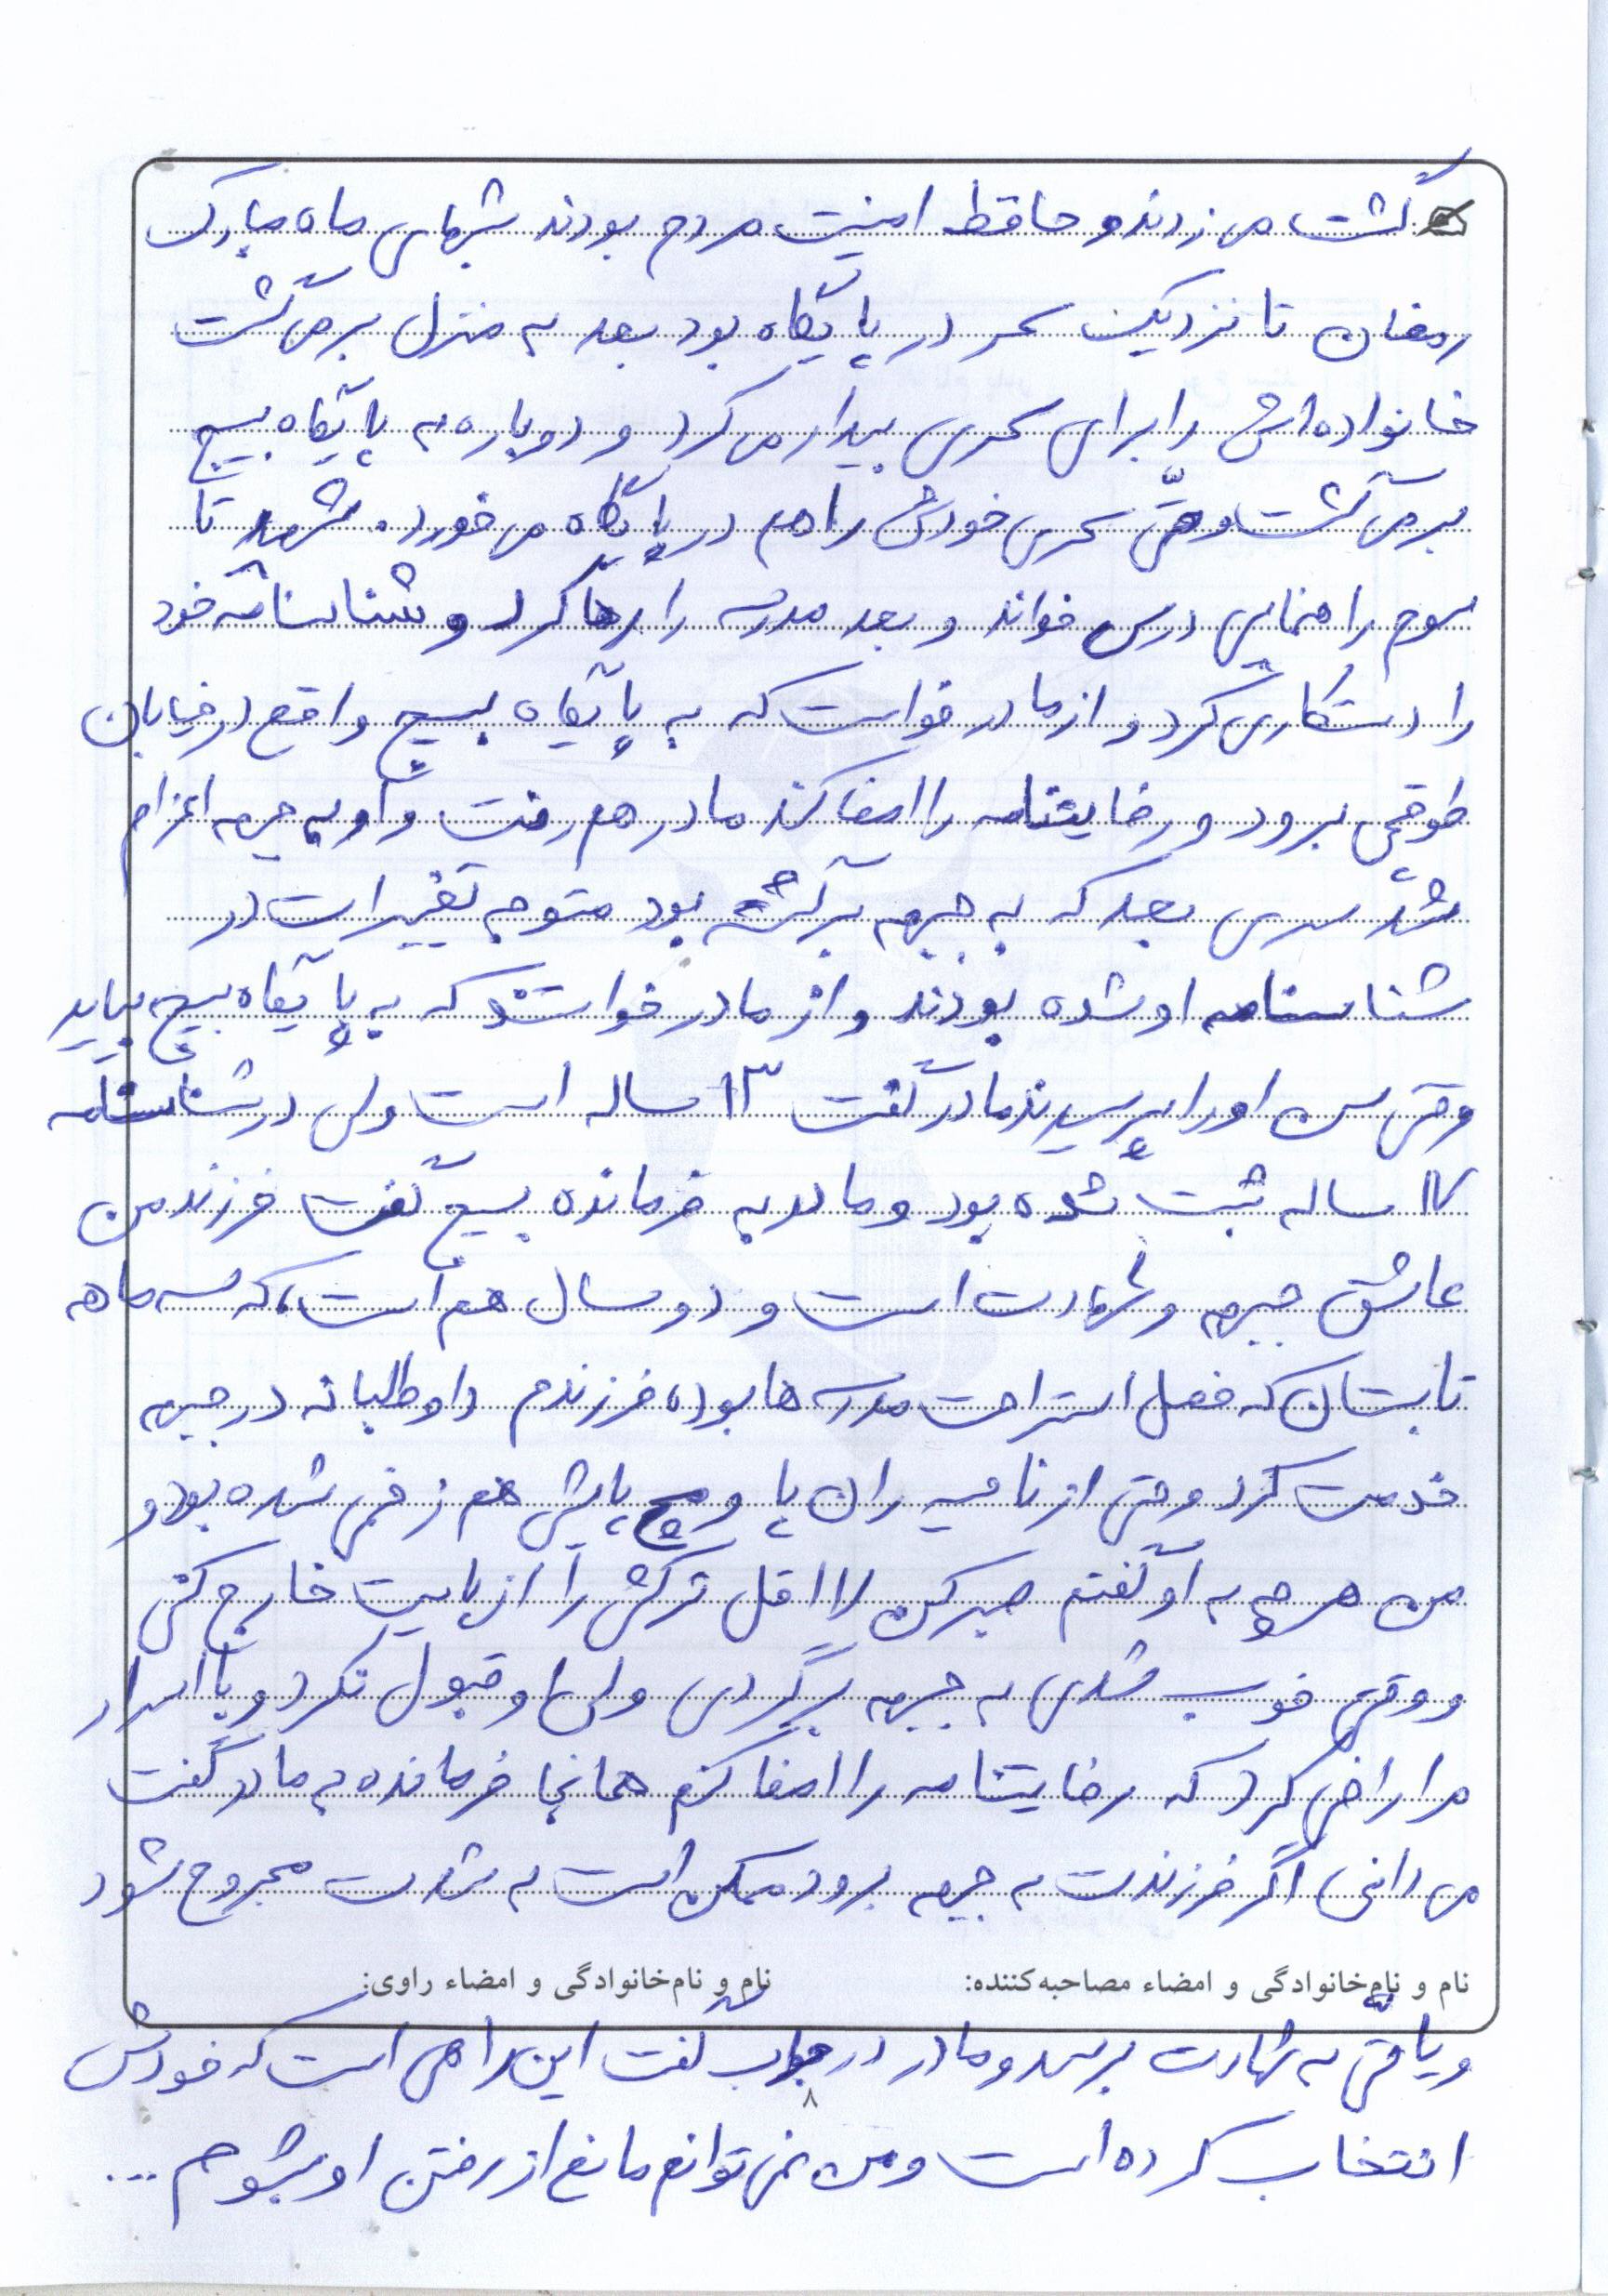 گشت می‌زدند و حافظ امنیت مردم بودند شبهای ماه مبارک
رمضان تا نزدیک سحر در پایگاه بود بعد به منزل برمی‌گشت
خانواده‌اش را برای سحری بیدار می‌کرد و دوباره به پایگاه بسیج
برمی‌گشت و حتّی سحری خودش را هم در پایگاه می‌خورد. شهید تا
سوم راهنمایی درس خواند و بعد مدرسه را رها کرد و شناسنامه خود
را دستکاری کرد و از مادر خواست که به پایگاه بسیج واقع در خیابان
طوقچی برود و رضایتنامه را امضا کند مادر هم رفت و او به جبهه اعزام
شد سری بعد که به جبهه برگشته بود متوجه تغییرات در
شناسنامه او شده بودند و از مادر خواستند که به پایگاه بسیج بیاید
وقتی سن او را پرسیدند مادر گفت ۱۳ ساله است ولی در شناسنامه
۱۷ ساله ثبت شده بود و مادر به فرمانده بسیج گفت فرزند من
عاشق جبهه و شهادت است و دو سال هم است، که سه ماهه
تابستان که فصل استراحت مدرسه ها بوده فرزندم داوطلبانه در جبهه
خدمت کرد و حتی از ناحیه ران پا و مچ پایش هم زخمی شده بود و
من هر چه به او گفتم صبر کن لا اقل ترکش را از پایت خارج کنی
و وقتی خوب شدی به جبهه برگردی ولی او قبول نکرد و با اسرار
مرا راضی کرد که رضایتنامه را امضا کنم همانجا فرمانده به مادر گفت
می دانی اگر فرزندت به جبهه برود ممکن است به شدت مجروح شود
نام و نام‌خانوادگی و امضاء مصاحبه‌کننده: نام و نام‌خانوادگی و امضاء راوی:
و یا حتّی به شهادت برسد و مادر در جواب گفت این راهی است که خودش
۸
انتخاب کرده است و من نمی توانم مانع از رفتن او بشوم ...